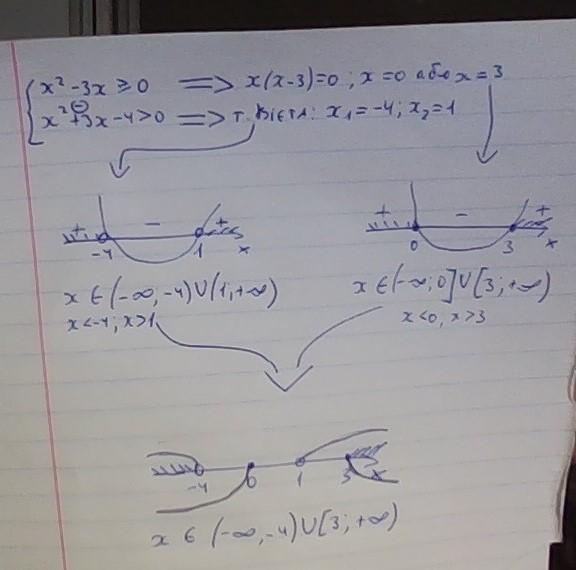 x² - 3x ≥ 0 ⟹ x(x-3)=0 ; x=0 або x=3
x² + 3x - 4 > 0 ⟹ т. Вієта: x₁ = -4; x₂ = 1
+ - +
-4 1 x
+ - +
0 3 x
x ∈ (-∞, -4) ∪ (1, +∞)
x < -4; x > 1
x ∈ (-∞; 0] ∪ [3; +∞)
x < 0, x > 3
-4 0 1 3 x
x ∈ (-∞, -4) ∪ [3; +∞)